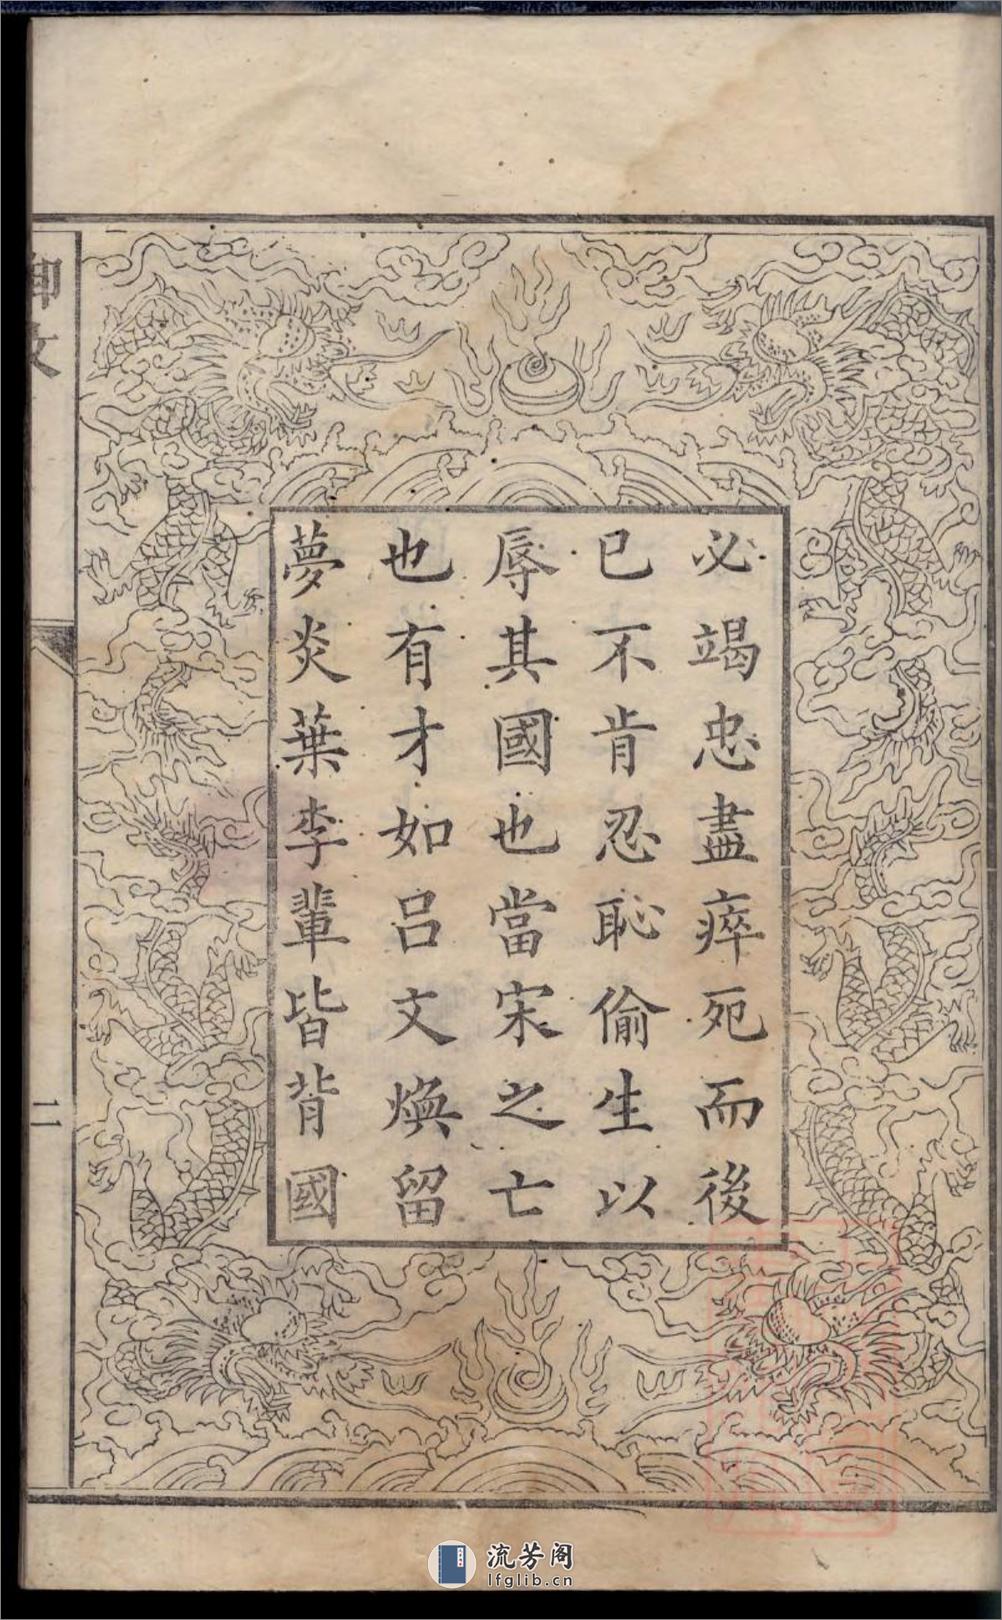 必竭忠盡瘁死而後
已不肯忍恥偷生以
辱其國也當宋之亡
也有才如呂文煥留
夢炎葉李輩皆背國
二
流芳阁
lfglib.cn